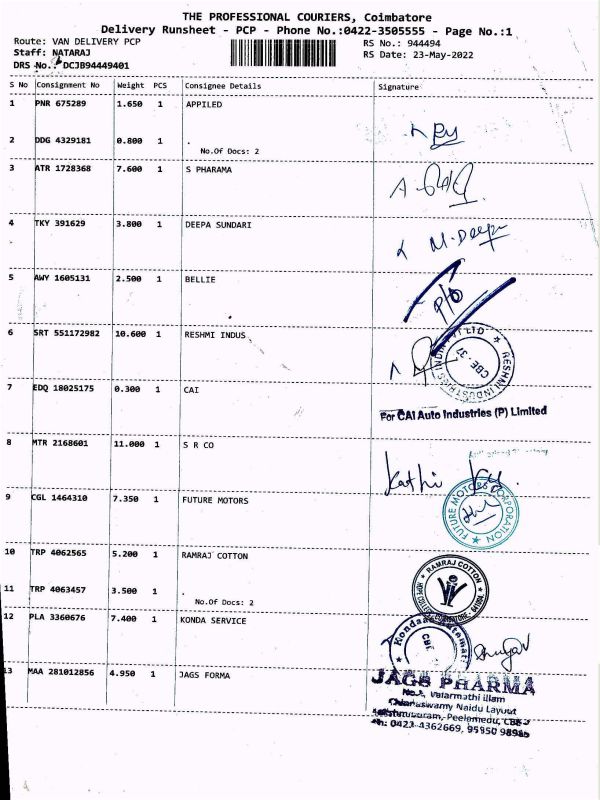 THE PROFESSIONAL COURIERS, Coimbatore
Delivery Runsheet - PCP - Phone No.:0422-3505555 - Page No.:1
Route: VAN DELIVERY PCP
RS No.: 944494
Staff: NATARAJ
RS Date: 23-May-2022
DRS No.: DCJB94449401
S No Consignment No Weight PCS Consignee Details Signature
1 PNR 675289 1.650 1 APPILED
2 DDG 4329181 0.800 1 .
No.Of Docs: 2
3 ATR 1728368 7.600 1 S PHARAMA
4 TKY 391629 3.800 1 DEEPA SUNDARI
M.Deepa
5 AWY 1605131 2.500 1 BELLIE
P/o
6 SRT 551172982 10.600 1 RESHMI INDUS
RESHMI INDUSTRIES INDIA PVT LTD
CBE - 37
7 EDQ 18025175 0.300 1 CAI
For CAI Auto Industries (P) Limited
8 MTR 2168601 11.000 1 S R CO
Kathi
9 CGL 1464310 7.350 1 FUTURE MOTORS
FUTURE MOTORS CORPORATION
10 TRP 4062565 5.200 1 RAMRAJ COTTON
RAMRAJ COTTON
11 TRP 4063457 3.500 1 .
No.Of Docs: 2
12 PLA 3360676 7.400 1 KONDA SERVICE
CBE
13 MAA 281012856 4.950 1 JAGS FORMA
JAGS PHARMA
Valarmathi illam
Naidu Layout
Peelamedu, CBE-
Ph: 0423-4362669,